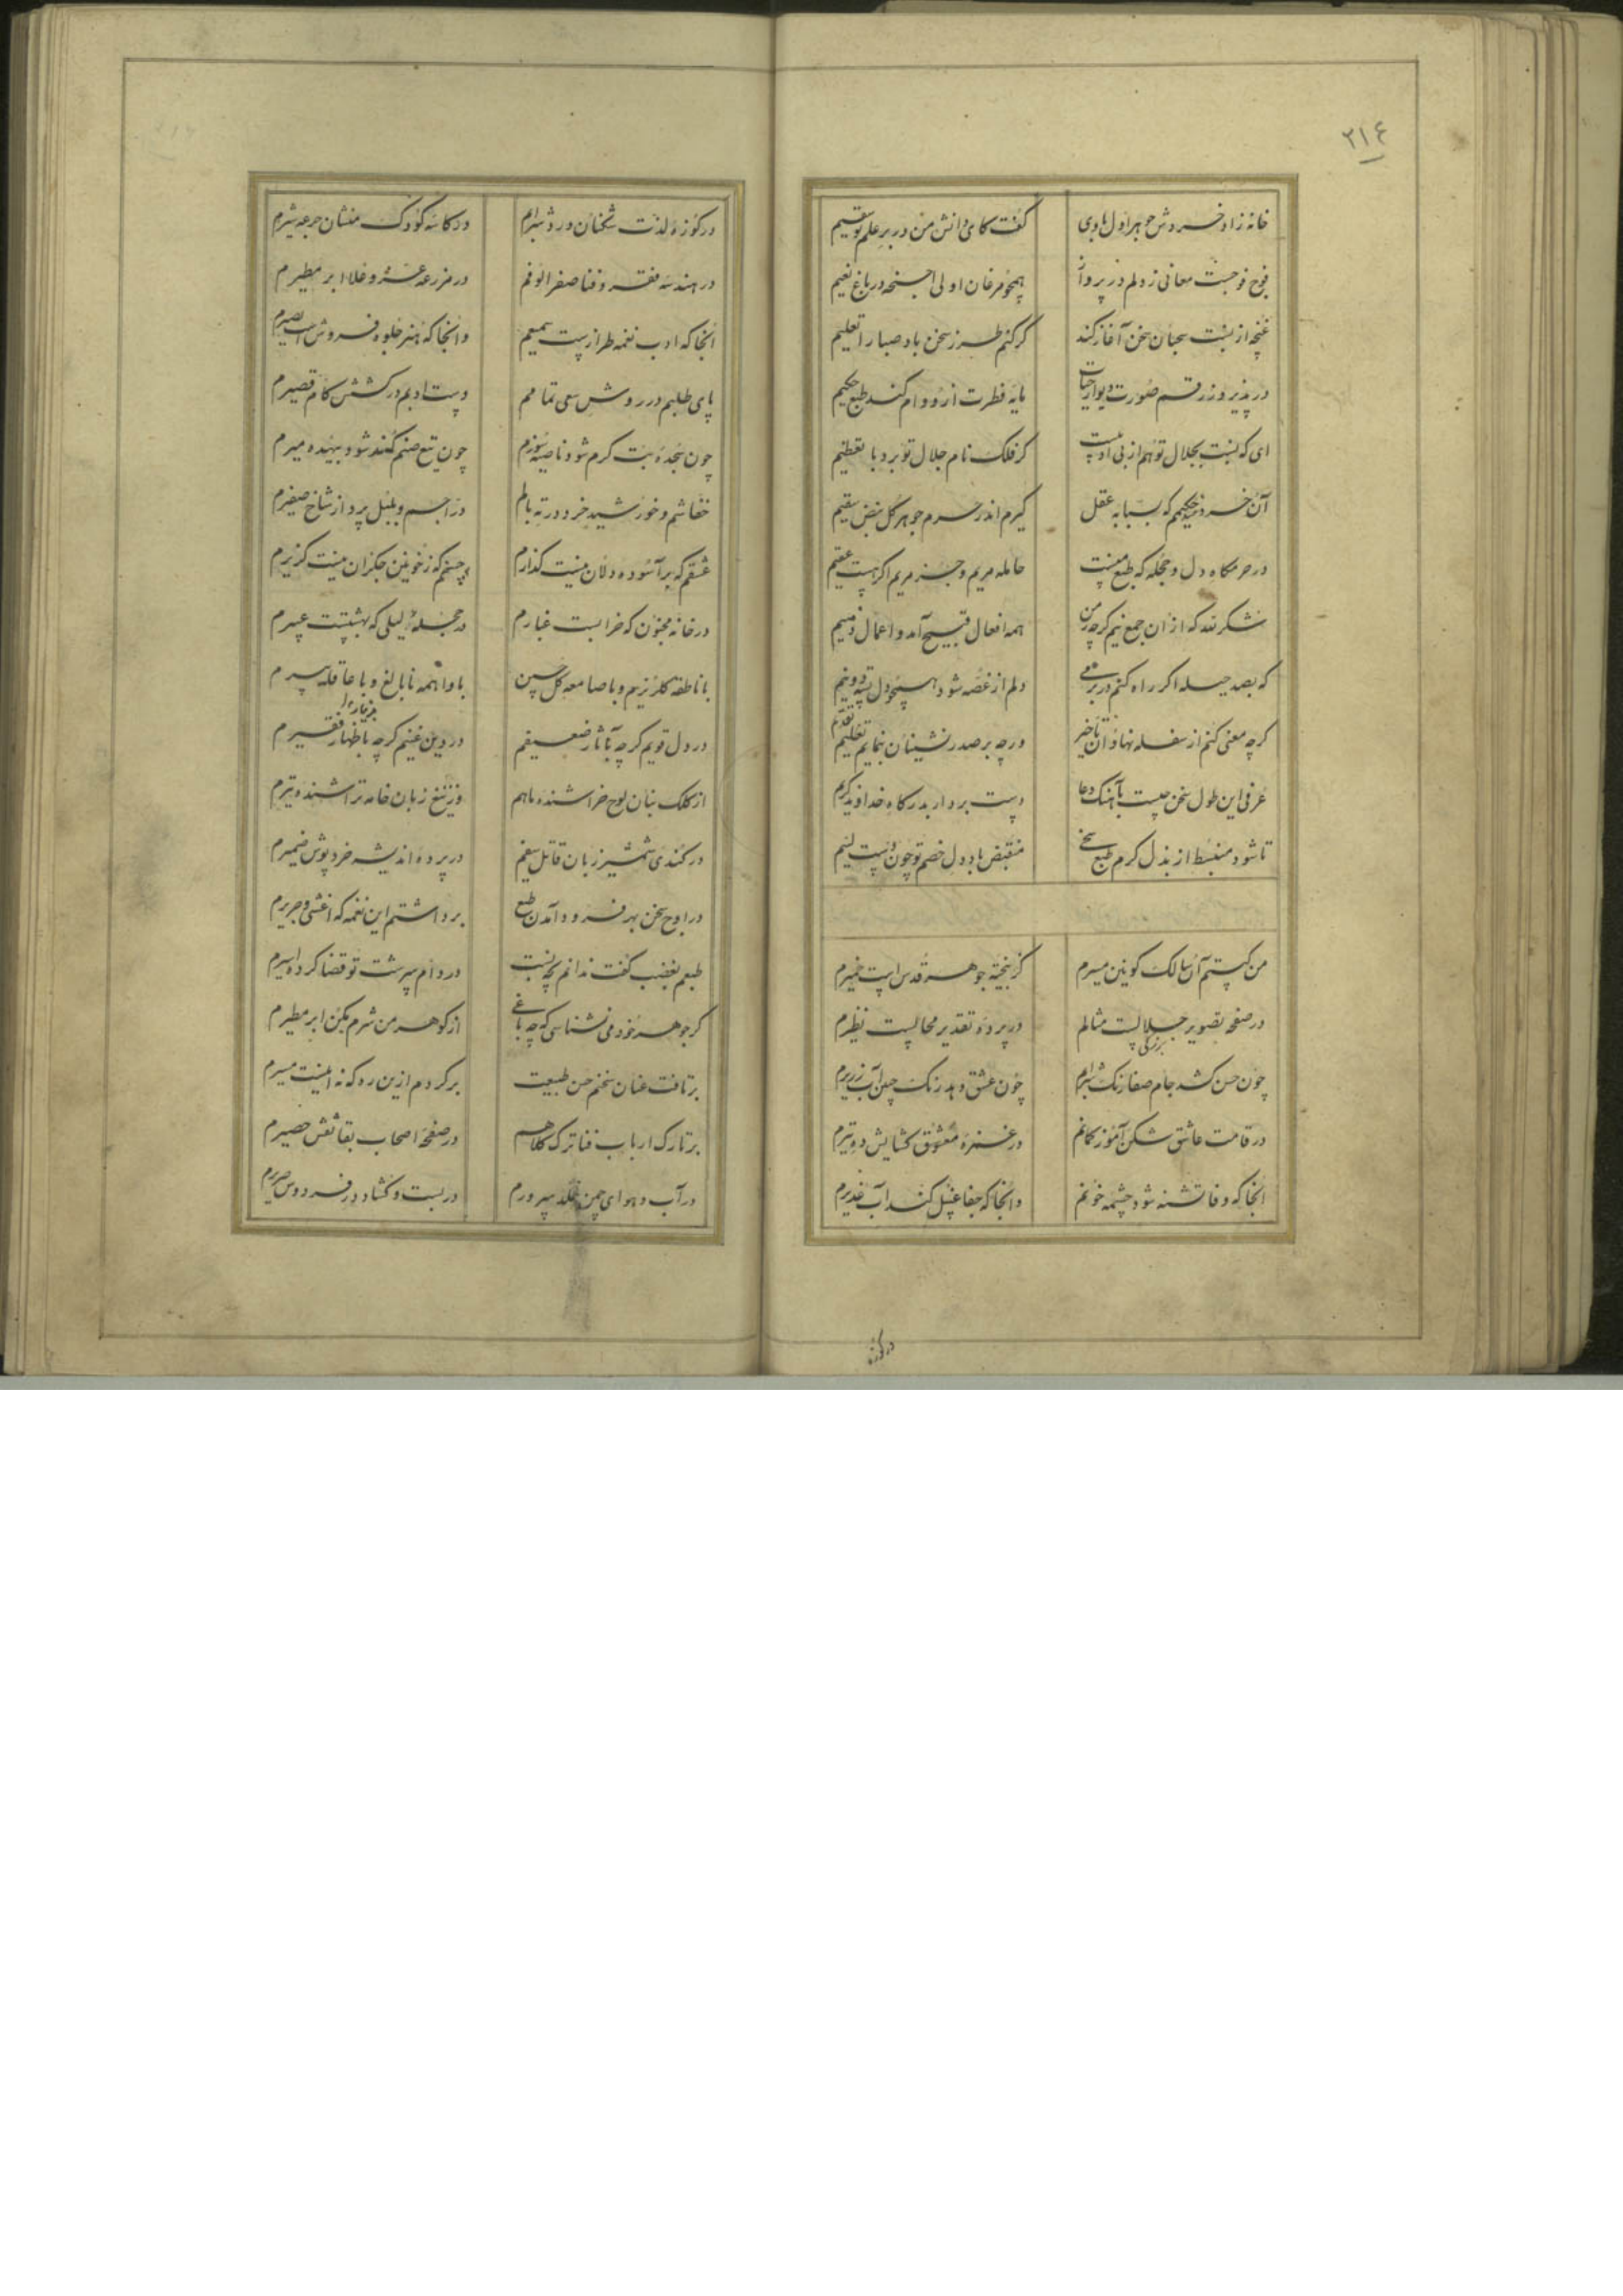 ٢١٤
خانه زاد خرد و شوجوهر اول هادی گفت کای دانش من در بر علم تو سقیم
فوج فوجست معانی ز دلم در پرواز همچو مرغان اولی اجنحه در باغ نعیم
غنچه از نسبت بجان سخن آغاز کند گر کنم طرز سخن باد صبا را تعلیم
در پذیرد ز رقم صورت دیوار حیات مایه فطرت ازو وام کند طبع حکیم
ای که نسبت بجلال تو هم از بی ادبیست گر فلک نام جلال تو برد با تعظیم
آن خرد حکیمم که بسبابه عقل گیرم اندر حرم جوهر کل نبض سقیم
در حرمگاه دل و حجله که طبع منست حامله مریم و جز مریم اگر هست عقیم
شکر لله که از ان جمع نیم گرچه ز من همه افعال قبیح آمد و اعمال ذمیم
که بصد حیله اگر راه کنم در بزمی دلم از غصه شود همچو دل پسته دو نیم
گرچه معنی کنم از سفله نهادان تاخیر ورچه بر صدر نشینان بنمایم تقدیم تعلیم
عرفی این طول سخن چیست بآهنگ دعا دست بردار بدرگاه خداوند کریم
تا شود منبسط از بذل کرم طبع سخی منقبض باد دل خصم تو چون دست لئیم
من کیستم آن سالک کونین مسیرم کز بیخته جوهر قدس است خمیرم
در صفحه تصویر جلالیست مثالم در پرده تقدیر محالیست نظیرم
بزرگی
چون حسن کشد جام صفا رنگ شرابم چون عشق دهد رنگ چمن آب زریرم
در قامت عاشق شکن آموز کمانم در غمزه معشوق گشایش ده تیرم
آنجا که وفا تشنه شود چشمه خونم وانجا که جفا غسل کند آب غدیرم
در کوزه
در کوزه لذت شکنان درد شرابم در کاسه کودک منشان جرعه شیرم
در هندسه فقر و فنا صفر الوفم در مزرعه عشرت و غلا ابر مطیرم
آنجا که ادب نغمه طرازیست سمیعم وانجا که هنر جلوه فروش است بصیرم
پای طلبم در روش سعی تمامم دست ادبم در کشش کام قصیرم
چون سجده بت گرم شود ناصیه سوزم چون تیغ صنم کند شود بیهده میرم
خفاشم و خورشید خرد در ته بالم در اجم و بلبل برد از شاخ صفیرم
عشقم که بر آسوده دلان نیست گذارم چشمم که ز خونین جگران نیست گزیرم
در خانه مجنون که خرابست غبارم در حجله لیلی که بهشتست عبیرم
با ناطقه گلریزم و با صامعه گل چین با واهمه نابالغ و با عاقله پیرم
در دل قویم گرچه بآثار ضعیفم در دین غنیم گرچه باظهار فقیرم
از کلک بنان لوح خراشنده ماهم وز تیغ زبان خامه تراشنده تیرم
در کندی شمشیر زبان قاتل سیفم در پرده اندیشه خرد پوش ضمیرم
در اوج سخن بهر فرود آمدن طبع برداشتم این نغمه که اعشی و جریرم
طبعم بغضب گفت ندانم بچه نسبت در دام سرشت تو قضا کرده اسیرم
گر جوهر خود می نشناسی که چه باغی از گوهر من شرم بکن ابر مطیرم
برتافت عنان سخنم حسن طبیعت برگردم ازین ره که نه اینست مسیرم
بر تارک ارباب فنا ترک کلاهم در صفحه اصحاب بقا نقش حصیرم
در آب و هوای چمن خلد بپرورم در بست و گشاد در فردوس صریرم